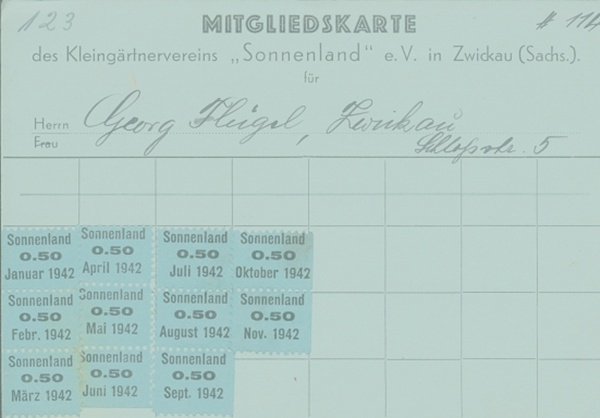 123
MITGLIEDSKARTE
# 114
des Kleingärtnervereins „Sonnenland" e.V. in Zwickau (Sachs.).
für
Herrn Georg Flügel, Zwickau
Frau Schloßstr. 5
Sonnenland
0.50
Januar 1942
Sonnenland
0.50
April 1942
Sonnenland
0.50
Juli 1942
Sonnenland
0.50
Oktober 1942
Sonnenland
0.50
Febr. 1942
Sonnenland
0.50
Mai 1942
Sonnenland
0.50
August 1942
Sonnenland
0.50
Nov. 1942
Sonnenland
0.50
März 1942
Sonnenland
0.50
Juni 1942
Sonnenland
0.50
Sept. 1942